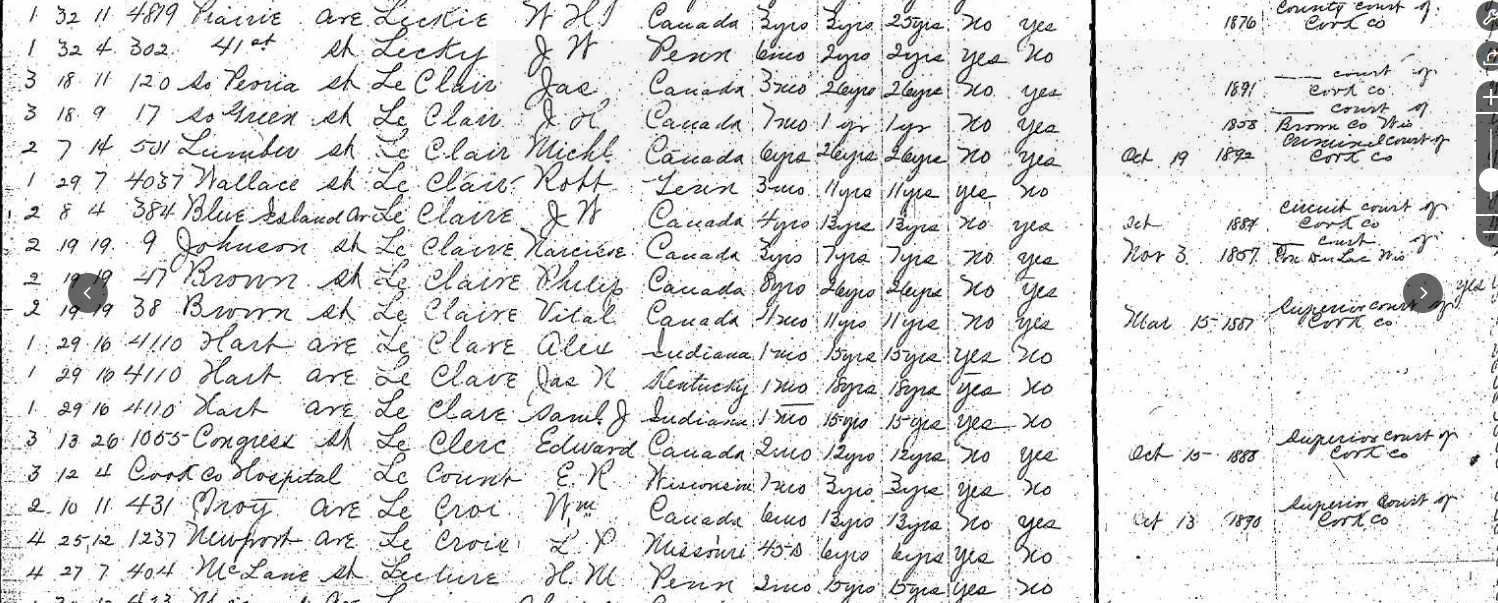 1 32 11 4819 Prairie ave Leckie W H J Canada 3yrs 3yrs 25yrs no yes 1876 County court of Cook co
1 32 4 302 41st st Lecky J W Penn 6mo 2yrs 2yrs yes no
3 18 11 120 so Peoria st Le Clair Jas Canada 3mo 26yrs 26yrs no yes 1891 court of Cook co
3 18 9 17 so Green st Le Clair J H Canada 7mo 1 yr 1yr no yes 1858 court of Brown Co Wis
2 7 14 501 Lumber st Le Clair Michl Canada 6yrs 26yrs 26yrs no yes Oct 19 1892 Criminal court of Cook co
1 29 7 4037 Wallace st Le Clair Robt Tenn 3mo 11yrs 11yrs yes no
2 8 4 384 Blue Island av Le Claire J W Canada 4yrs 13yrs 13yrs no yes Oct Circuit court of Cook co
2 19 19 9 Johnson st Le Claire Narcisse Canada 3yrs 7yrs 7yrs no yes Nov 3 1857 court of Fon Du Lac Wis
2 19 19 47 Brown st Le Claire Philip Canada 8yrs 26yrs 26yrs no yes yes
2 19 19 38 Brown st Le Claire Vital Canada 4mo 11yrs 11yrs no yes Mar 15 1887 Superior court of Cook co
1 29 16 4110 Hart ave Le Clave Alex Indiana 1mo 15yrs 15yrs yes no
1 29 16 4110 Hart ave Le Clave Jas N Kentucky 1mo 18yrs 18yrs yes no
1 29 16 4110 Hart ave Le Clave Saml J Indiana 1mo 15yrs 15yrs yes no
3 13 26 1055 Congress st Le Clerc Edward Canada 2mo 12yrs 12yrs no yes Oct 15 1888 Superior court of Cook co
3 12 4 Cook Co Hospital Le Count E R Wisconsin 7mo 3yrs 3yrs yes no
2 10 11 431 Troy ave Le Croi Wm Canada 6mo 13yrs 13yrs no yes Oct 13 1890 Superior Court of Cook co
4 25 12 1237 Newport ave Le Croix L P Missouri 45D 6yrs 6yrs yes no
4 27 7 404 McLane st Lecture H M Penn 2mo 15yrs 15yrs yes no